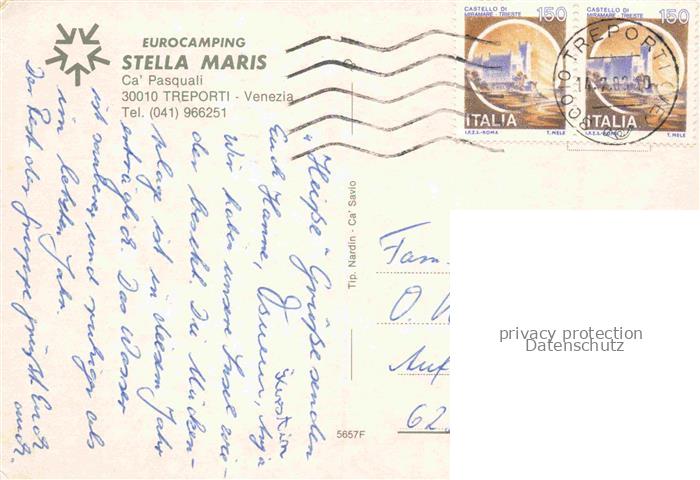 EUROCAMPING
STELLA MARIS
Ca' Pasquali
30010 TREPORTI - Venezia
Tel. (041) 966251
CASTELLO DI
MIRAMARE - TRIESTE
150
ITALIA
I.P.Z.S. - ROMA
T. MELE
CASTELLO DI
MIRAMARE - TRIESTE
150
ITALIA
I.P.Z.S. - ROMA
T. MELE
30010 TREPORTI (VE)
"Heiße" Grüße senden
Euch Hanne, Anja
Kerstin
Wir haben unsere Insel wie-
der besetzt. Die Mücken-
plage ist in diesem Jahr
erträglich. Das Wasser
ist sauberer und ruhiger als
im letzten Jahr.
Der Rest der Gruppe grüßt Euch
auch.
Tip. Nardin - Ca' Savio
5657F
Fam.
O.
Auf
62
privacy protection
Datenschutz